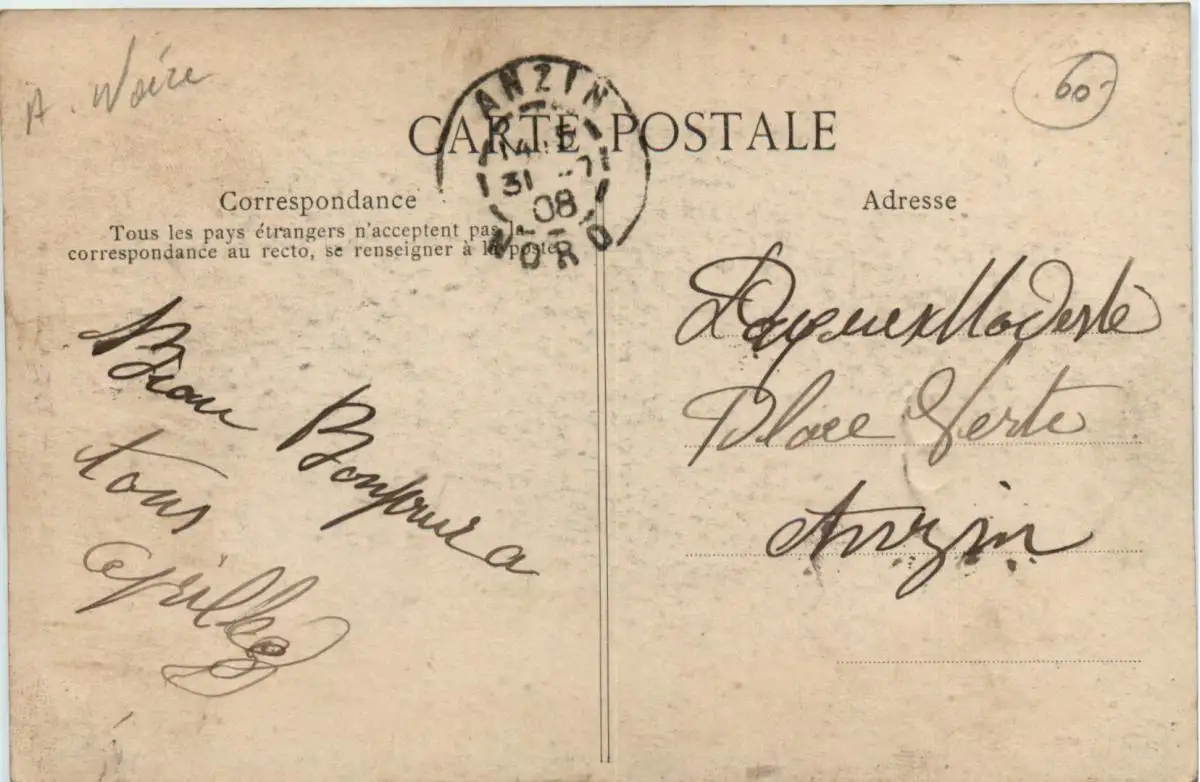 A. Noire
60-
CARTE POSTALE
ANZIN
14 · 5
31 - 7
08
NORD
Correspondance
Tous les pays étrangers n'acceptent pas la
correspondance au recto, se renseigner à la poste
Adresse
Bien Bonjour a
tous
Modeste
Place Verte
Anzin